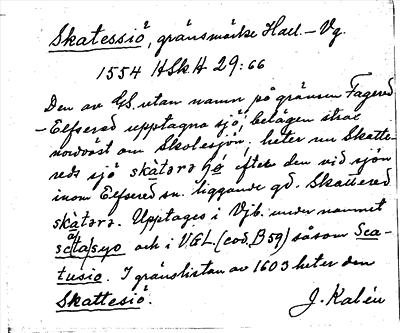 Skatessiö, gränsmärke Hall.-Vg.
1554 HSkH 29:66
Den av GS. utan namn på gränsen Fagered
-Elfsered upptagna sjö, belägen strax
nordväst om Skolesjön. heter nu Skatte-
reds sjö skàtərə ʃǿ efter den vid sjön
inom Elfsered sn. liggande gd. Skattered
skàtərə. Upptages i Vjb. under namnet
sc(ta)syo och i VGL. (cod. B 59) såsom Sca-
tusio. I gränslistan av 1603 heter den
Skattesiö.
J. Kalén